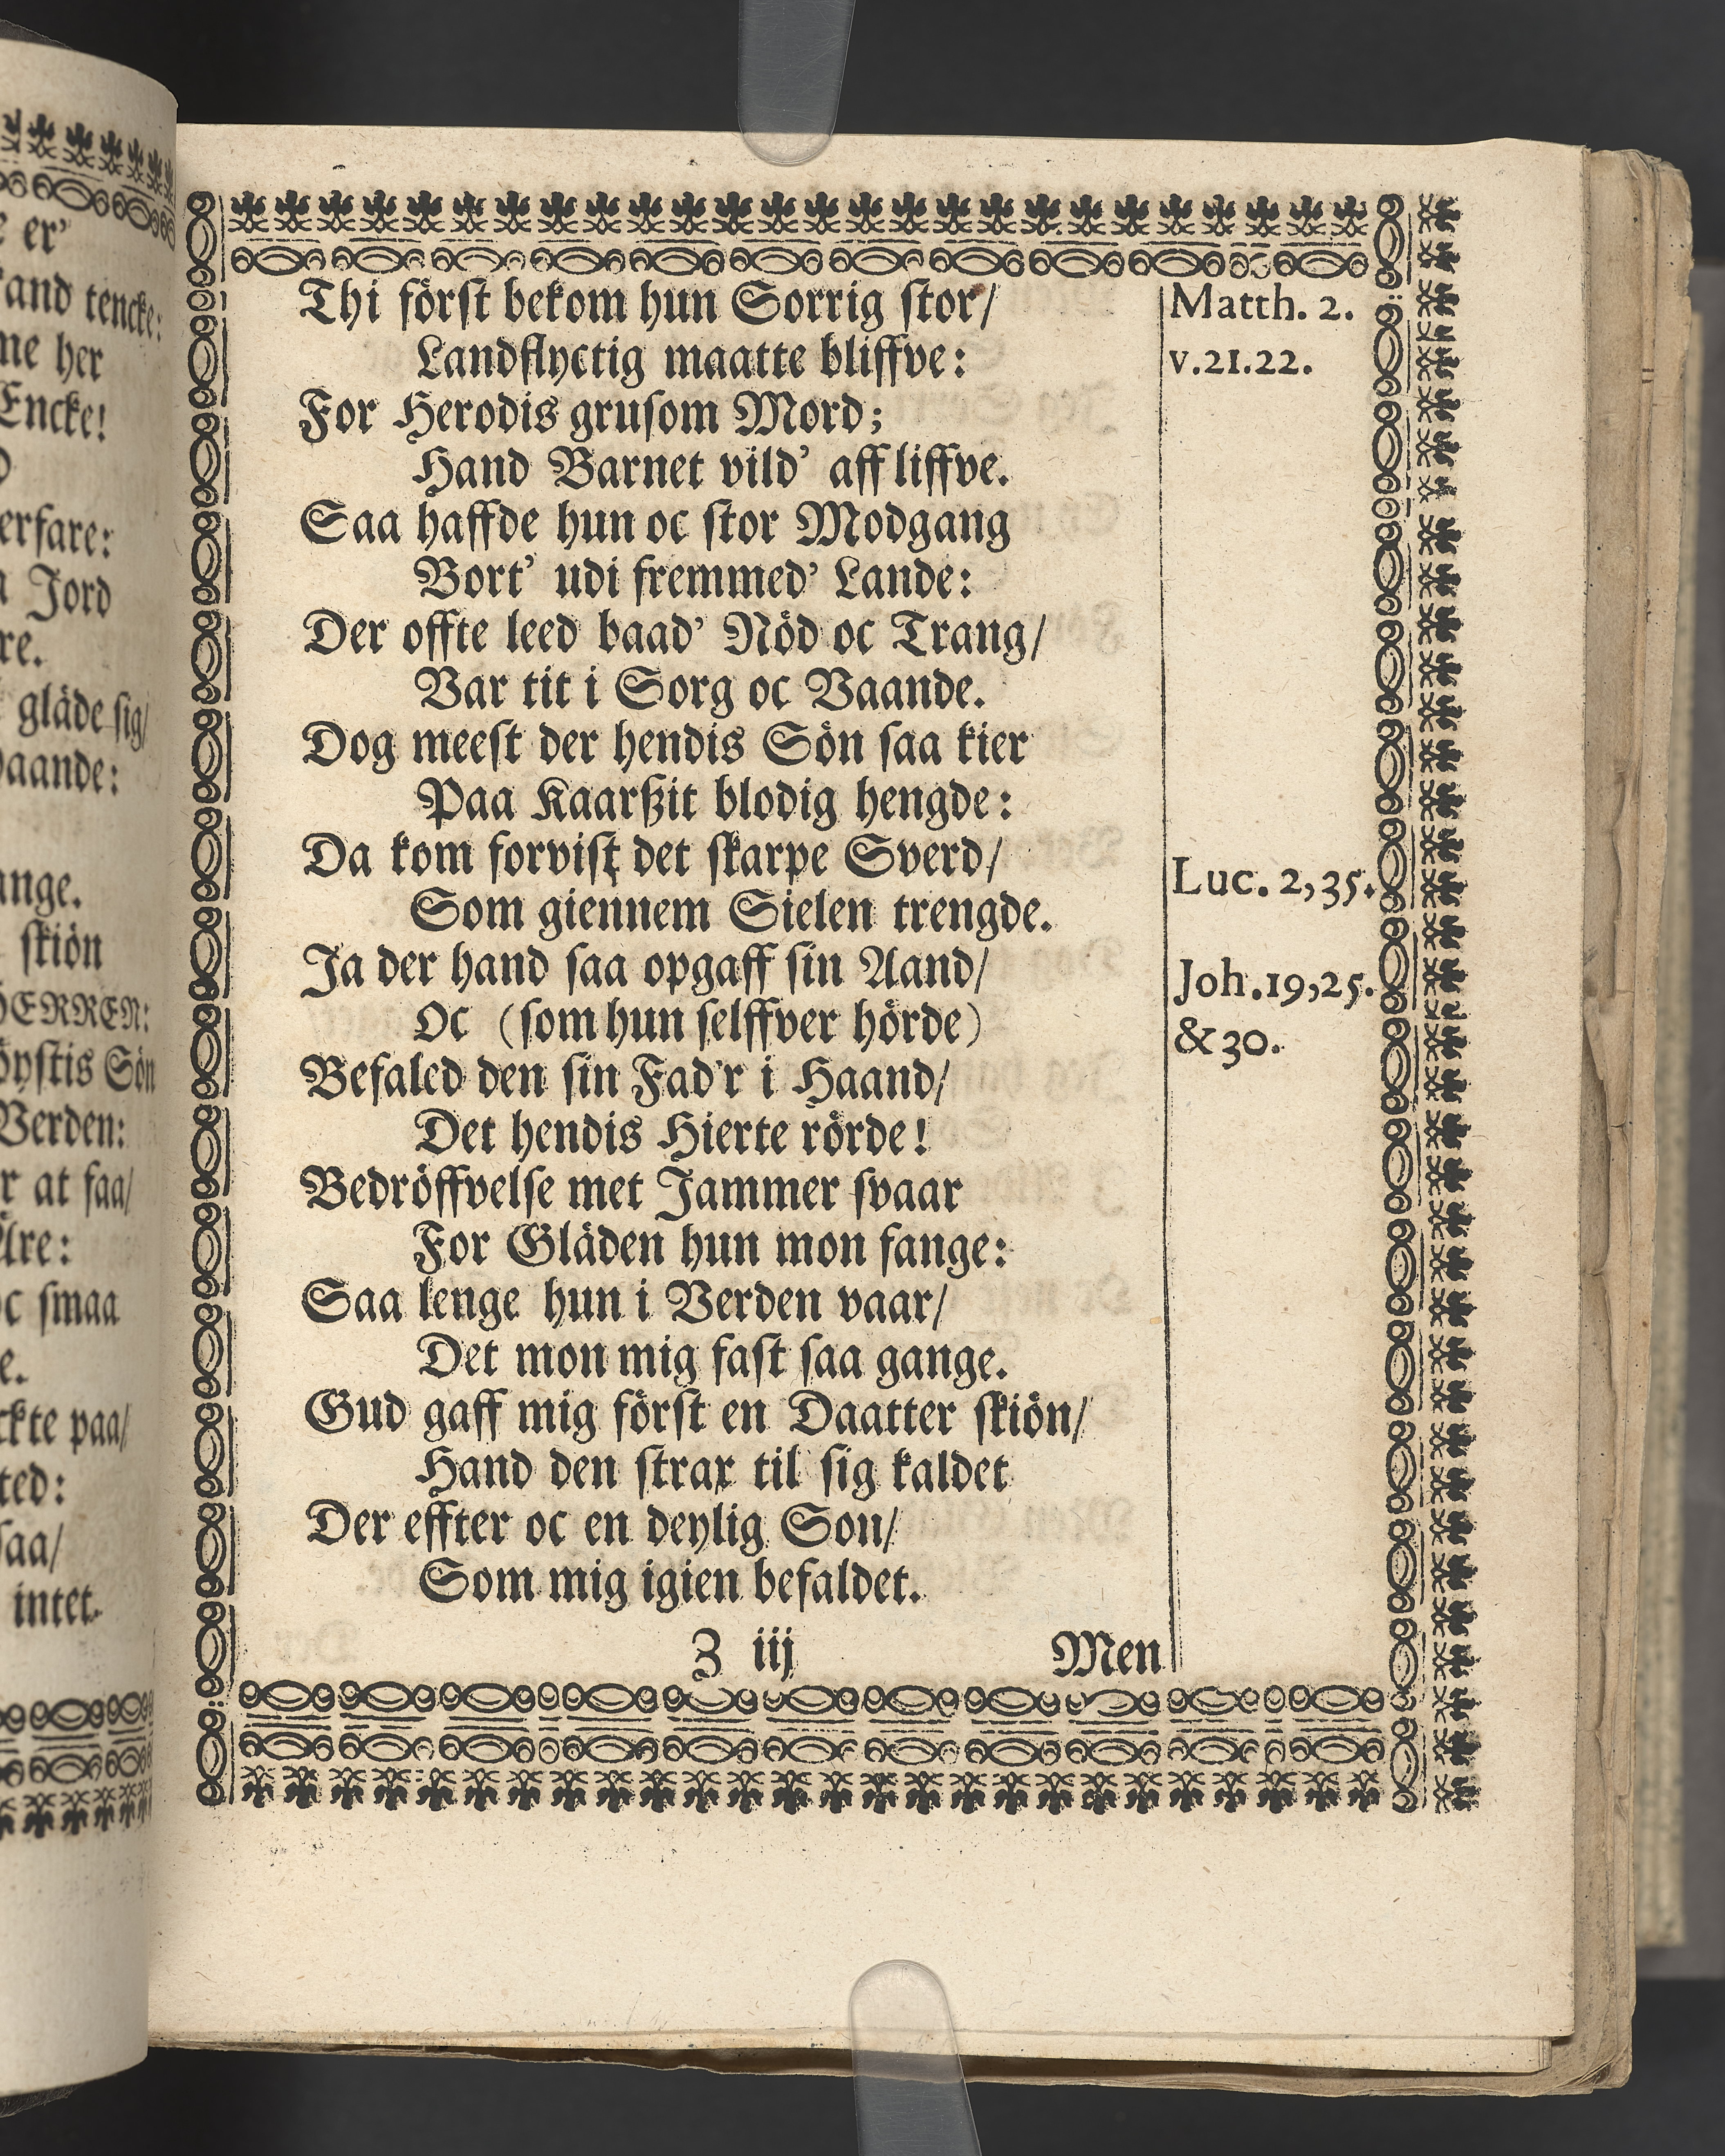 er'
tencke:
me her
Encke!
erfare:
Jord
gläde sig/
skiön
Verden:
at faa/
oc smaa
paa/
intet.
Thi först bekom hun Sorrig stor/
Landflyctig maatte bliffve:
For Herodis grusom Mord;
Hand Barnet vild' aff liffve.
Saa haffde hun oc stor Modgang
Bort' udi fremmed' Lande:
Der offte leed baad' Nöd oc Trang/
Var tit i Sorg oc Vaande.
Dog meest der hendis Sön saa kier
Paa Kaarßit blodig hengde:
Da kom forvist det skarpe Sverd/
Som giennem Sielen trengde.
Ja der hand saa opgaff sin Aand/
Oc (som hun selffver hörde)
Befaled den sin Fad'r i Haand/
Det hendis Hierte rörde!
Bedröffvelse met Jammer svaar
For Gläden hun mon fange:
Saa lenge hun i Verden vaar/
Det mon mig fast saa gange.
Gud gaff mig först en Daatter skiön/
Hand den strax til sig kaldet
Der effter oc en deylig Son/
Som mig igien befaldet.
Z iij Men
Matth. 2.
v.21.22.
Luc. 2,35.
Joh.19,25.
&30.